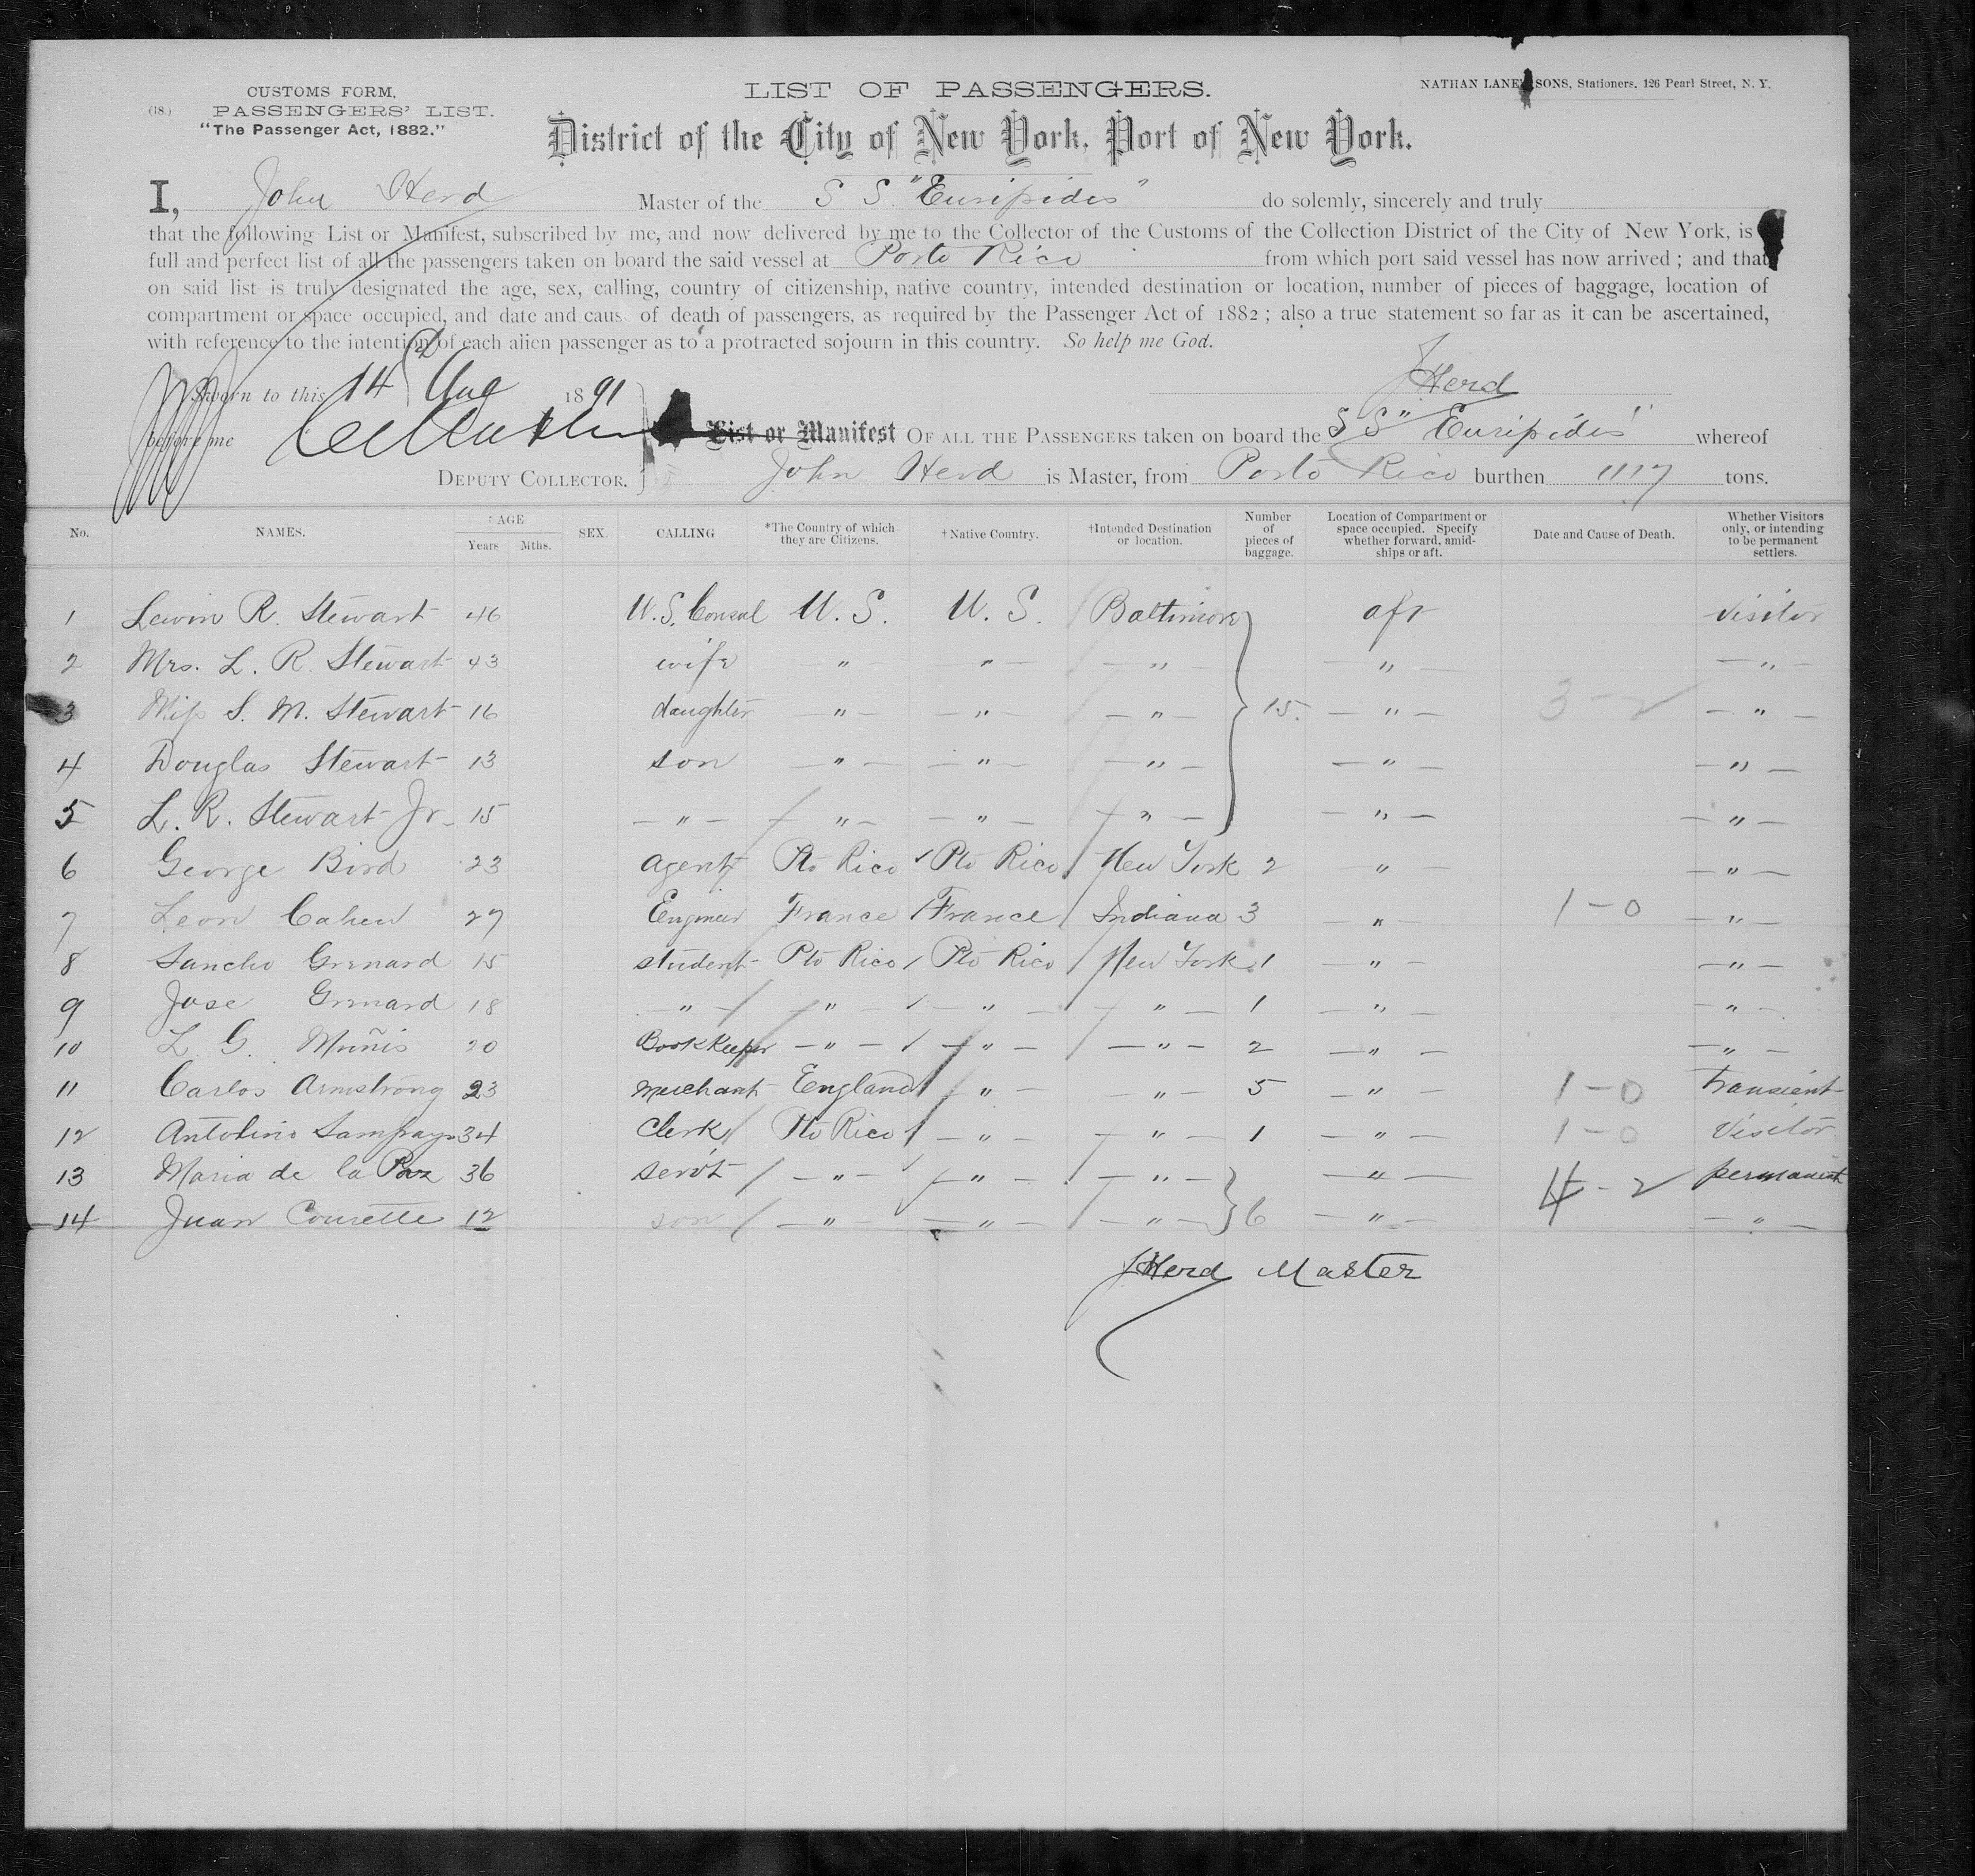 CUSTOMS FORM,
(18.) PASSENGERS' LIST.
"The Passenger Act, 1882."
LIST OF PASSENGERS.
NATHAN LANE SONS, Stationers, 126 Pearl Street, N. Y.
District of the City of New York, Port of New York.
I, John Herd Master of the S S "Euripides" do solemnly, sincerely and truly
that the following List or Manifest, subscribed by me, and now delivered by me to the Collector of the Customs of the Collection District of the City of New York, is
full and perfect list of all the passengers taken on board the said vessel at Porto Rico from which port said vessel has now arrived ; and that
on said list is truly designated the age, sex, calling, country of citizenship, native country, intended destination or location, number of pieces of baggage, location of
compartment or space occupied, and date and cause of death of passengers, as required by the Passenger Act of 1882 ; also a true statement so far as it can be ascertained,
with reference to the intention of each alien passenger as to a protracted sojourn in this country. So help me God.
Sworn to this 14 Aug 1891
J Herd
before me
List or Manifest OF ALL THE PASSENGERS taken on board the S S "Euripides" whereof
DEPUTY COLLECTOR. John Herd is Master, from Porto Rico burthen 1117 tons.
No. NAMES. AGE Years Mths. SEX. CALLING *The Country of which they are Citizens. †Native Country. †Intended Destination or location. Number of pieces of baggage. Location of Compartment or space occupied. Specify whether forward, amidships or aft. Date and Cause of Death. Whether Visitors only, or intending to be permanent settlers.
1 Lewin R. Stewart 46 U.S. Consul U.S. U.S. Baltimore aft visitor
2 Mrs. L. R. Stewart 43 wife " " " " "
3 Miss S. M. Stewart 16 daughter " " " 15. " 3-2 "
4 Douglas Stewart 13 son " " " " "
5 L. R. Stewart Jr. 15 " " " " " "
6 George Bird 23 agent Pto Rico Pto Rico New York 2 " "
7 Leon Cahen 27 Engineer France France Indiana 3 " 1-0 "
8 Sancho Grenard 15 student Pto Rico Pto Rico New York 1 " "
9 Jose Grenard 18 " " " " 1 " "
10 L. G. Muñis 20 BookKeeper " " " 2 " "
11 Carlos Armstrong 23 merchant England " " 5 " 1-0 Transient
12 Antolino Sampayo 34 Clerk Pto Rico " " 1 " 1-0 Visitor
13 Maria de la Paz 36 servt " " " " 4-2 permanent
14 Juan Courette 12 son " " " 6 " "
J Herd Master